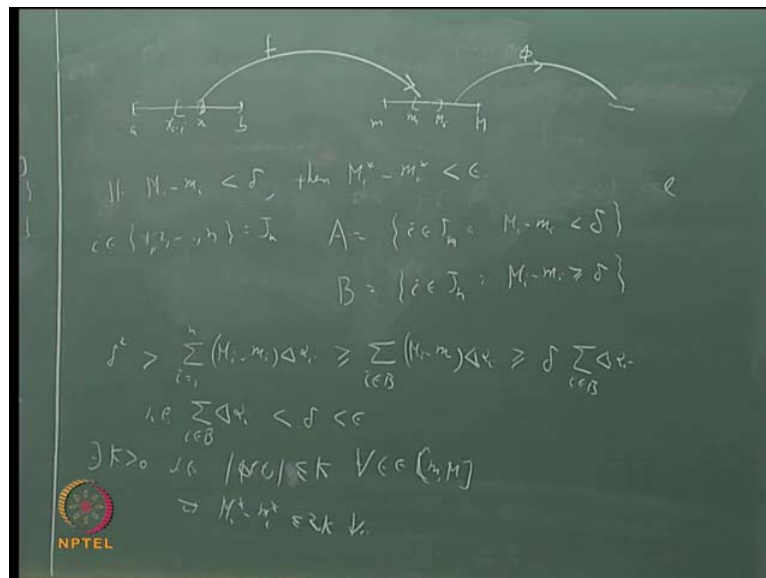 f φ
a x_{i-1} x_i b m m_i M_i M
If M_i - m_i < δ, then M_i^* - m_i^* < ε
i ∈ {1, 2, - -, n} = J_n A = {i ∈ J_n : M_i - m_i < δ}
B = {i ∈ J_n : M_i - m_i ≥ δ}
δ² > Σ_{i=1}^{n} (M_i - m_i) Δα_i ≥ Σ_{i∈B} (M_i - m_i) Δα_i ≥ δ Σ_{i∈B} Δα_i
i.e. Σ_{i∈B} Δα_i < δ < ε
∃ K > 0 |φ(t)| ≤ K ∀ t ∈ [m, M]
⇒ M_i^* - m_i^* ≤ 2K ∀ i
NPTEL